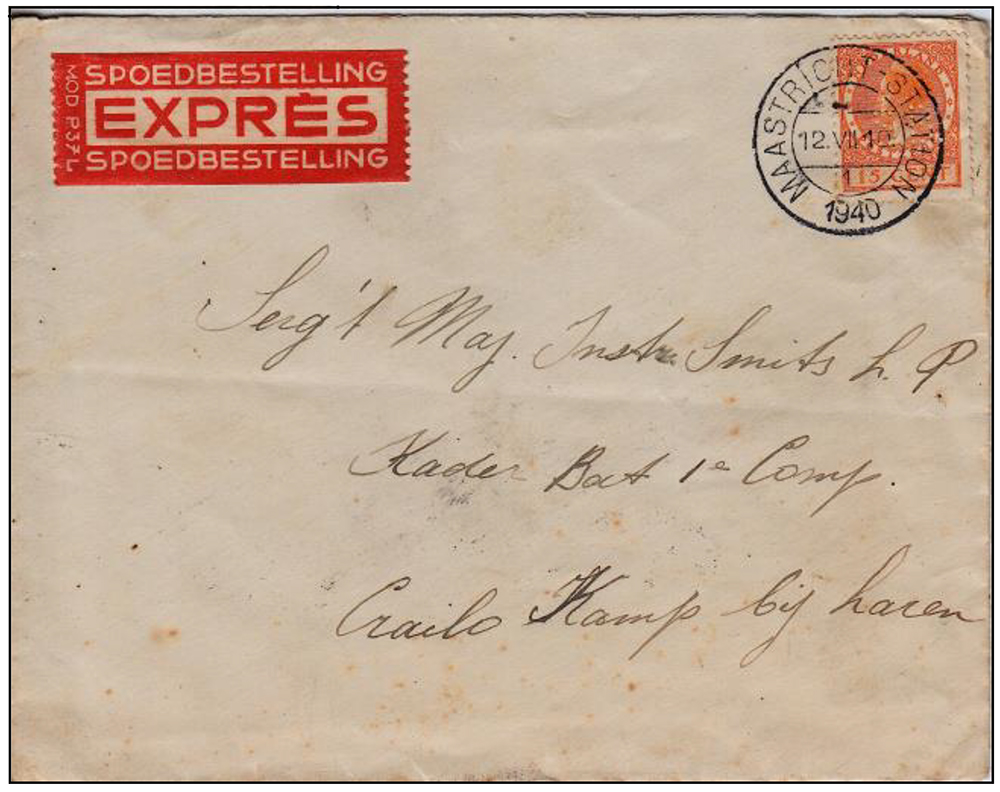 SPOEDBESTELLING
EXPRÈS
SPOEDBESTELLING
MOD P37L
MAASTRICHT STATION
12.VII.10.
1
1940
15
Serg't Maj. Instr. Smits L. P
Kader Bat 1e Comp.
Crailo Kamp bij Laren